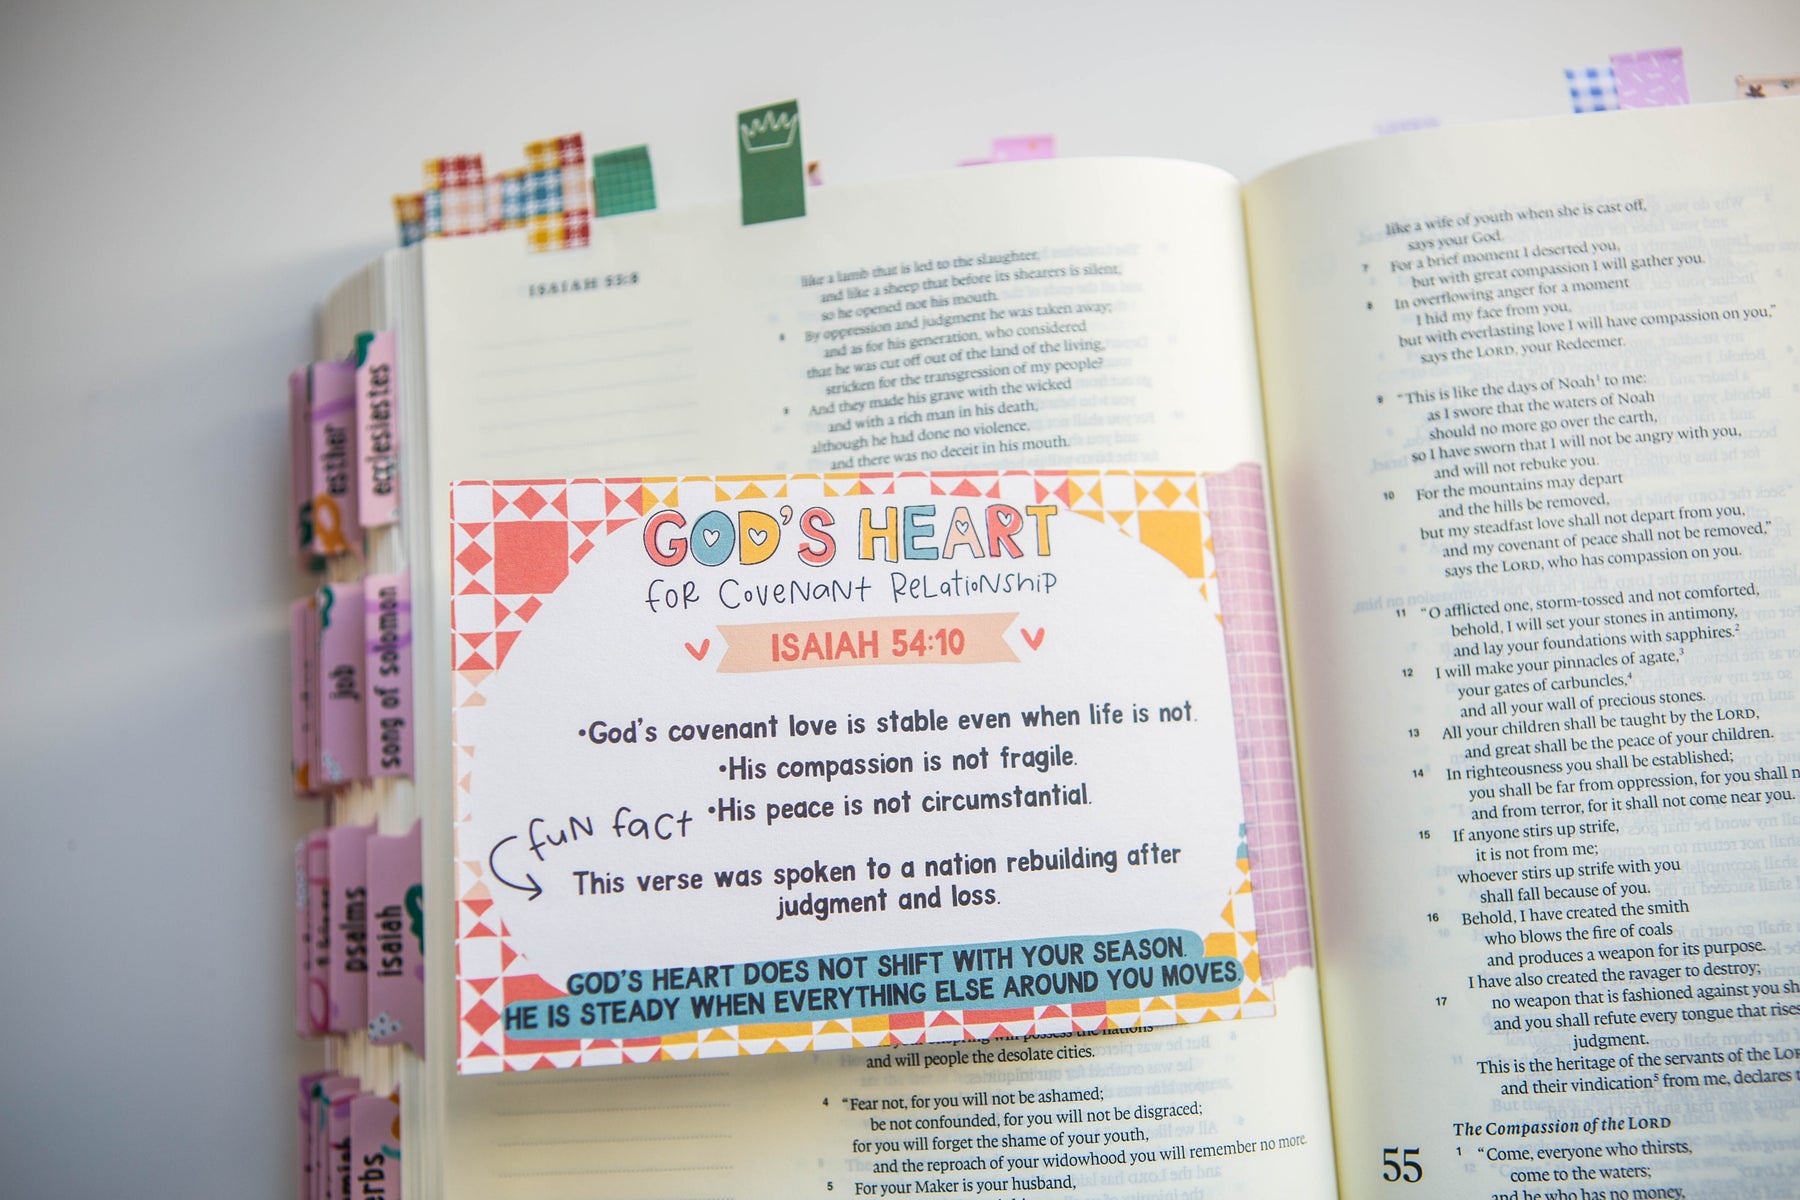 esther
ecclesiastes
job
song of solomon
psalms
isaiah
ISAIAH 53:8
like a lamb that is led to the slaughter,
and like a sheep that before its shearers is silent,
so he opened not his mouth.
8 By oppression and judgment he was taken away;
and as for his generation, who considered
that he was cut off out of the land of the living,
stricken for the transgression of my people?
9 And they made his grave with the wicked
and with a rich man in his death,
although he had done no violence,
and there was no deceit in his mouth.
GOD'S HEART
FOR COVENANT RELATIONSHIP
ISAIAH 54:10
•God's covenant love is stable even when life is not.
•His compassion is not fragile.
•His peace is not circumstantial.
fun fact
This verse was spoken to a nation rebuilding after
judgment and loss.
GOD'S HEART DOES NOT SHIFT WITH YOUR SEASON.
HE IS STEADY WHEN EVERYTHING ELSE AROUND YOU MOVES.
will possess the nations
and will people the desolate cities.
4 “Fear not, for you will not be ashamed;
be not confounded, for you will not be disgraced;
for you will forget the shame of your youth,
and the reproach of your widowhood you will remember no more.
5 For your Maker is your husband,
like a wife of youth when she is cast off,
says your God.
7 For a brief moment I deserted you,
but with great compassion I will gather you.
8 In overflowing anger for a moment
I hid my face from you,
but with everlasting love I will have compassion on you,”
says the LORD, your Redeemer.
9 “This is like the days of Noah1 to me:
as I swore that the waters of Noah
should no more go over the earth,
so I have sworn that I will not be angry with you,
and will not rebuke you.
10 For the mountains may depart
and the hills be removed,
but my steadfast love shall not depart from you,
and my covenant of peace shall not be removed,”
says the LORD, who has compassion on you.
11 “O afflicted one, storm-tossed and not comforted,
behold, I will set your stones in antimony,
and lay your foundations with sapphires.2
12 I will make your pinnacles of agate,3
your gates of carbuncles,4
and all your wall of precious stones.
13 All your children shall be taught by the LORD,
and great shall be the peace of your children.
14 In righteousness you shall be established;
you shall be far from oppression, for you shall n
and from terror, for it shall not come near you.
15 If anyone stirs up strife,
it is not from me;
whoever stirs up strife with you
shall fall because of you.
16 Behold, I have created the smith
who blows the fire of coals
and produces a weapon for its purpose.
I have also created the ravager to destroy;
17 no weapon that is fashioned against you sh
and you shall refute every tongue that rises
judgment.
This is the heritage of the servants of the LOR
and their vindication5 from me, declares t
The Compassion of the LORD
55 1 “Come, everyone who thirsts,
come to the waters;
and he who has no money,